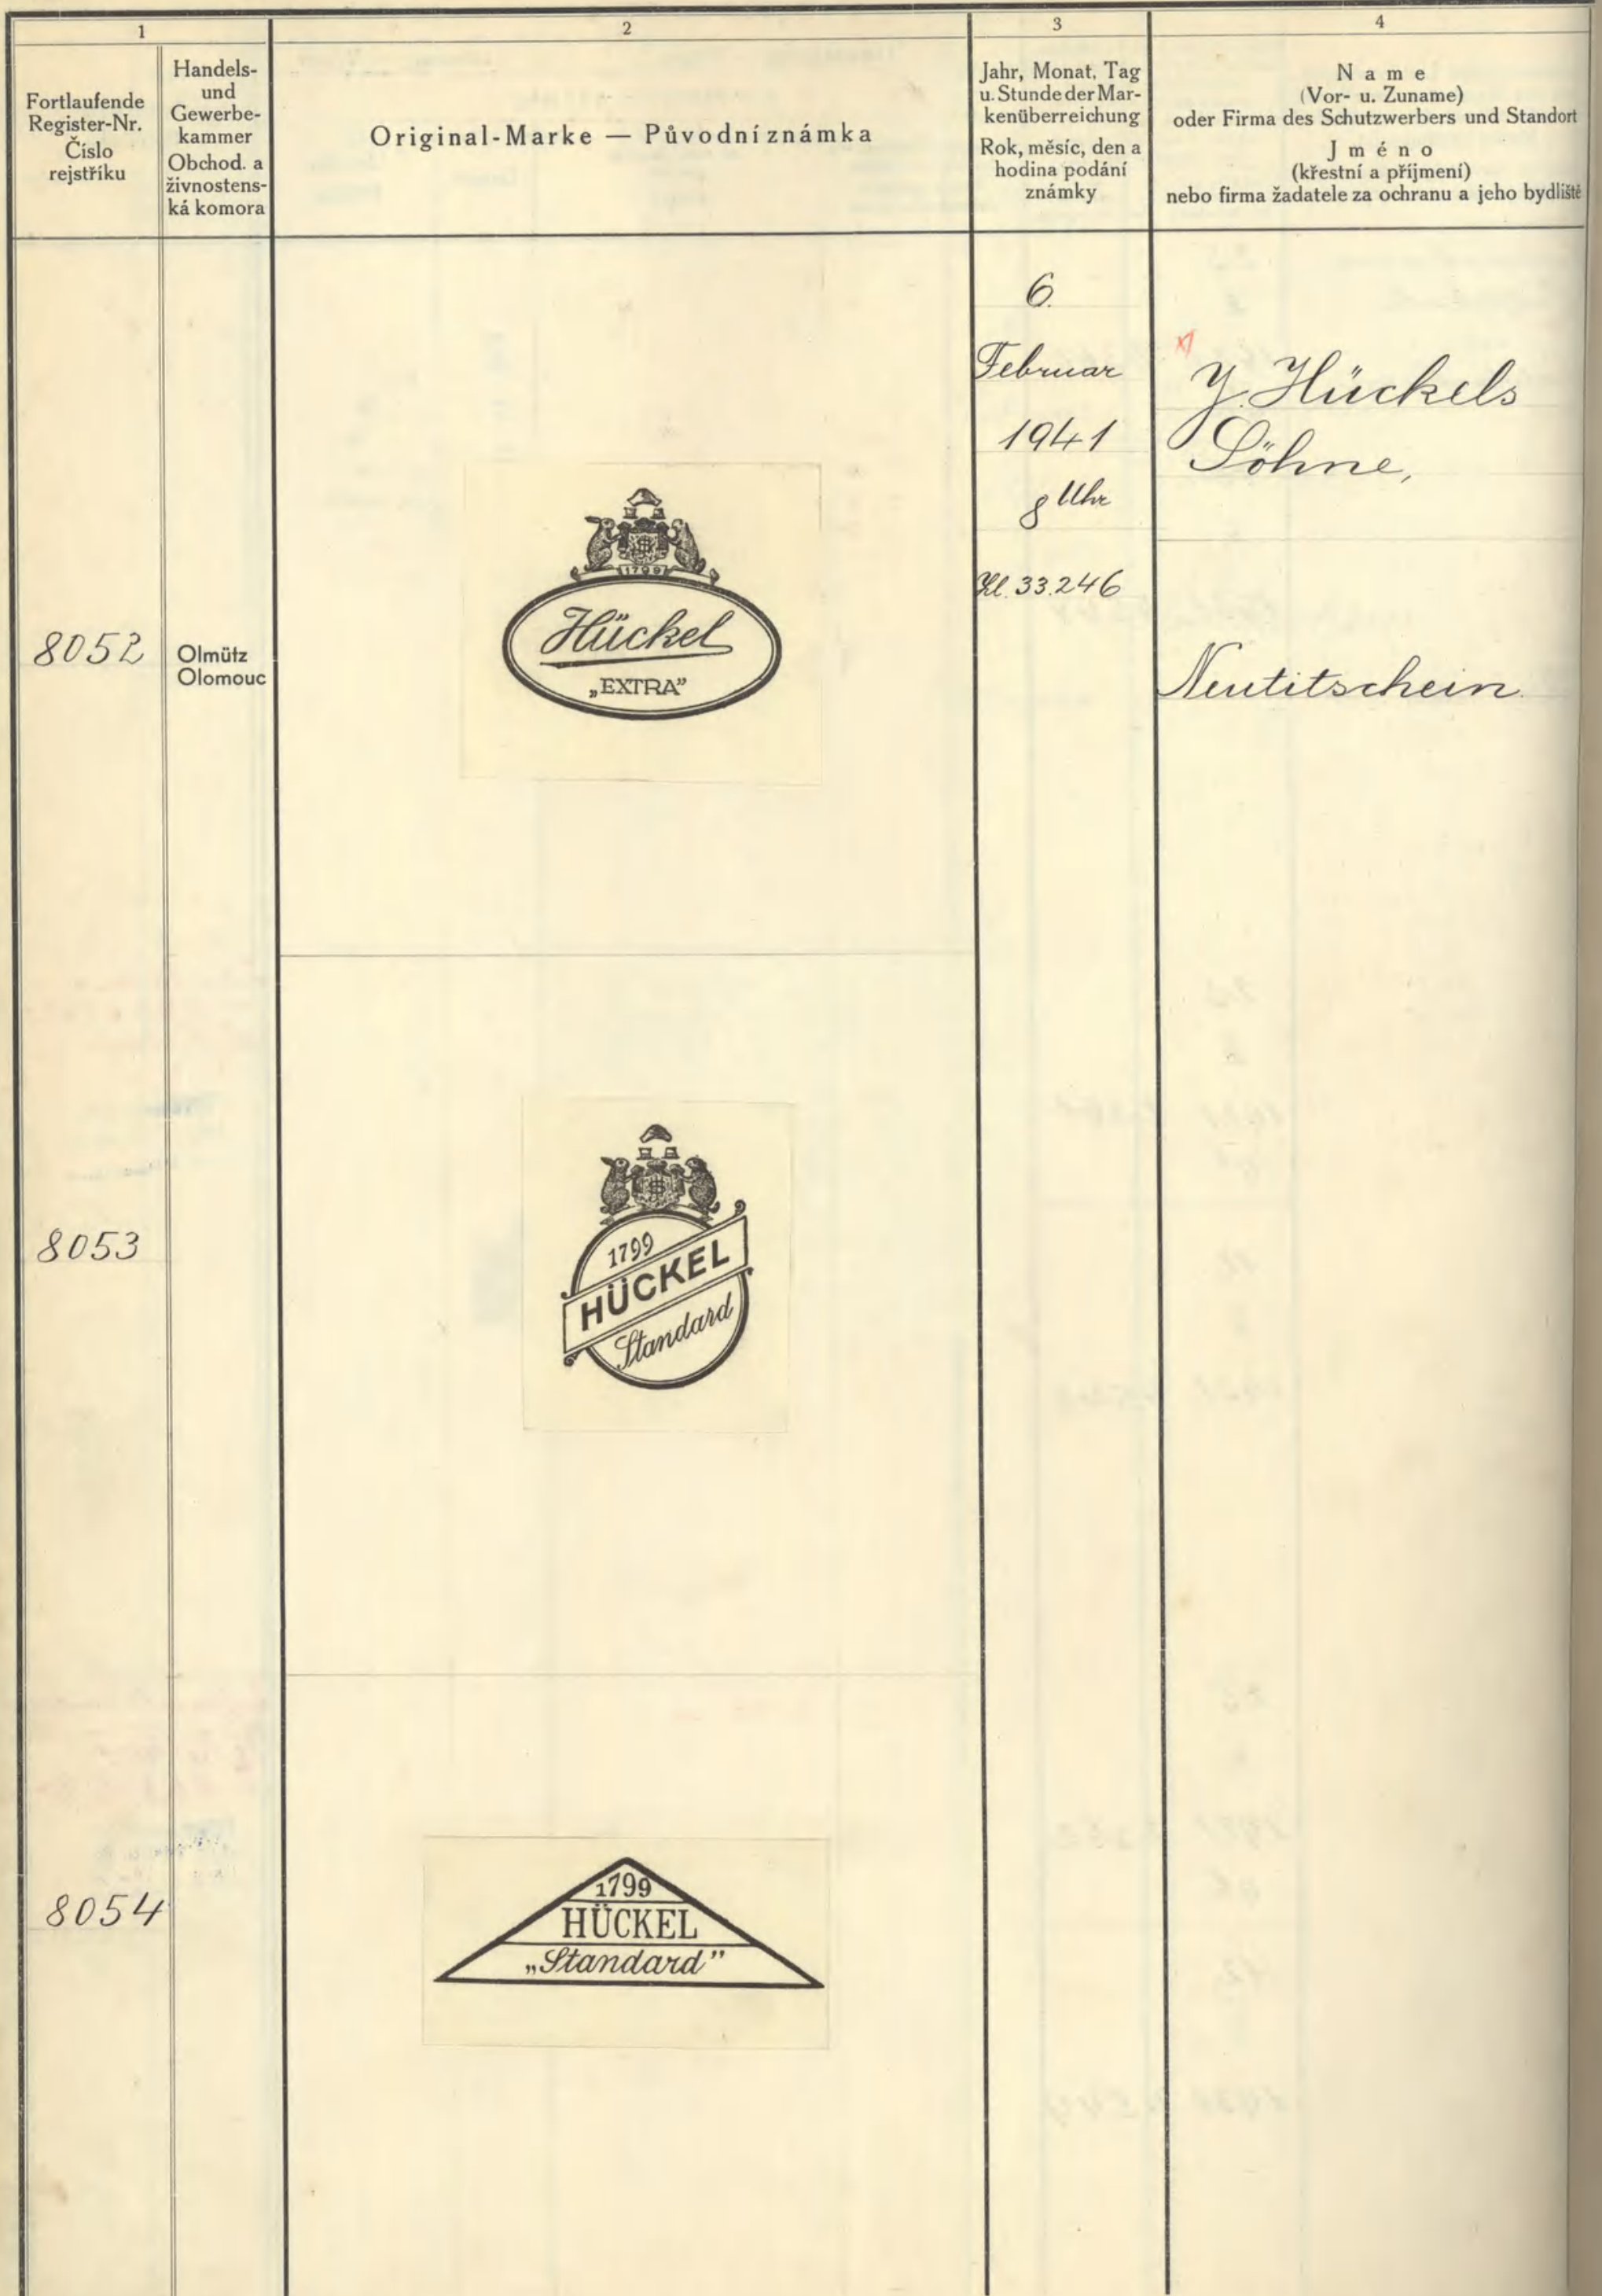 1
2
3
4
Fortlaufende
Register-Nr.
Číslo
rejstříku
Handels-
und
Gewerbe-
kammer
Obchod. a
živnostens-
ká komora
Original-Marke — Původní známka
Jahr, Monat, Tag
u. Stunde der Mar-
kenüberreichung
Rok, měsíc, den a
hodina podání
známky
Name
(Vor- u. Zuname)
oder Firma des Schutzwerbers und Standort
Jméno
(křestní a příjmení)
nebo firma žadatele za ochranu a jeho bydliště
8052
Olmütz
Olomouc
1799
Hückel
„EXTRA”
6.
Februar
1941
8 Uhr
Zl. 33.246
J. Hückels
Söhne,
Neutitschein.
8053
1799
HÜCKEL
Standard
8054
1799
HÜCKEL
„Standard”